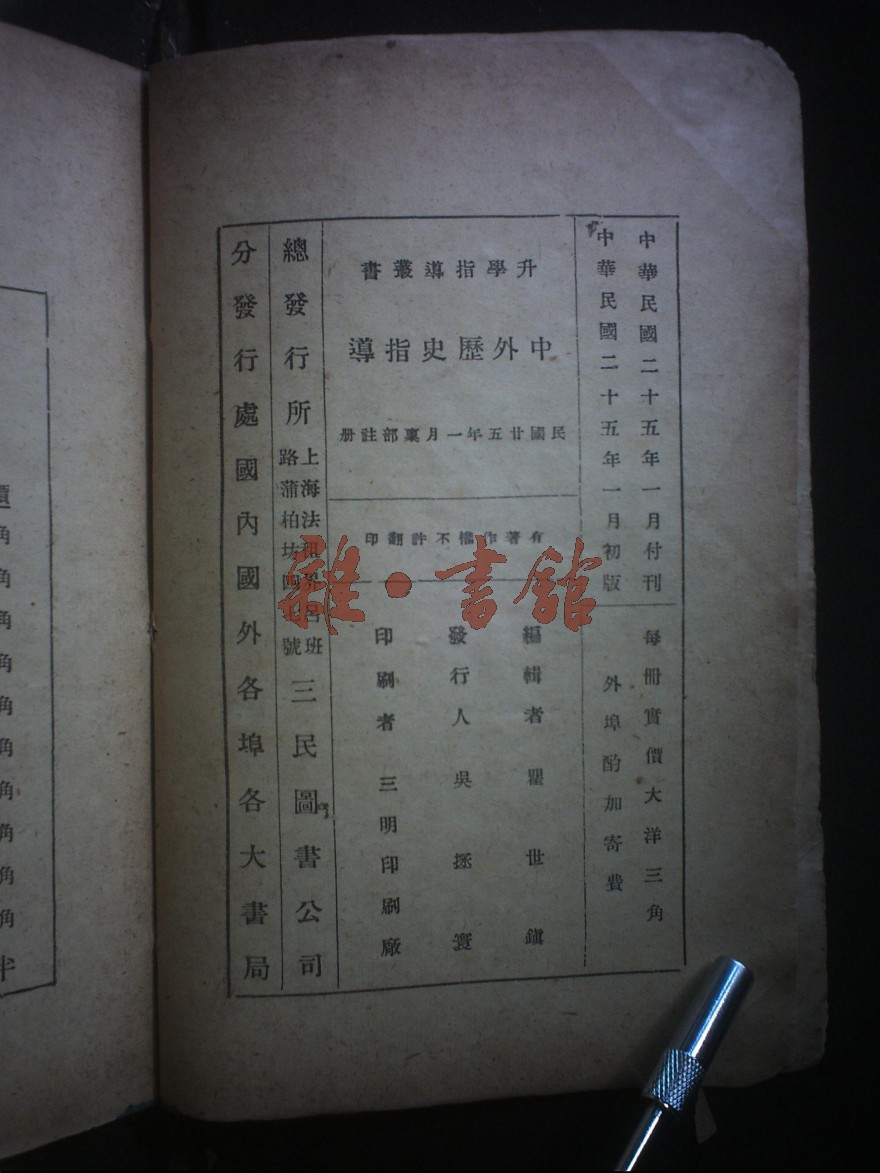 中華民國二十五年一月付刊
中華民國二十五年一月初版
每冊實價大洋三角
外埠酌加寄費
升學指導叢書
中外歷史指導
民國廿五年一月稟部註册
有著作權不許翻印
編輯者 瞿世鎮
發行人 吳拯寰
印刷者 三明印刷廠
總發行所
上海法租界呂班
路蒲柏坊四七號
三民圖書公司
分發行處國內國外各埠各大書局
雜·書館
角
角
角
角
角
角
角
角
角
角
半